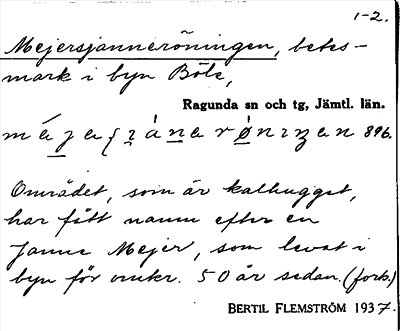 1-2.
Mejersjanneröningen, betes-
mark i byn Böle,
Ragunda sn och tg, Jämtl. län.
896.
Området, som är kalhugget,
har fått namn efter en
Janne Mejer, som levat i
byn för omkr. 50 år sedan. (forts.)
BERTIL FLEMSTRÖM 1937.